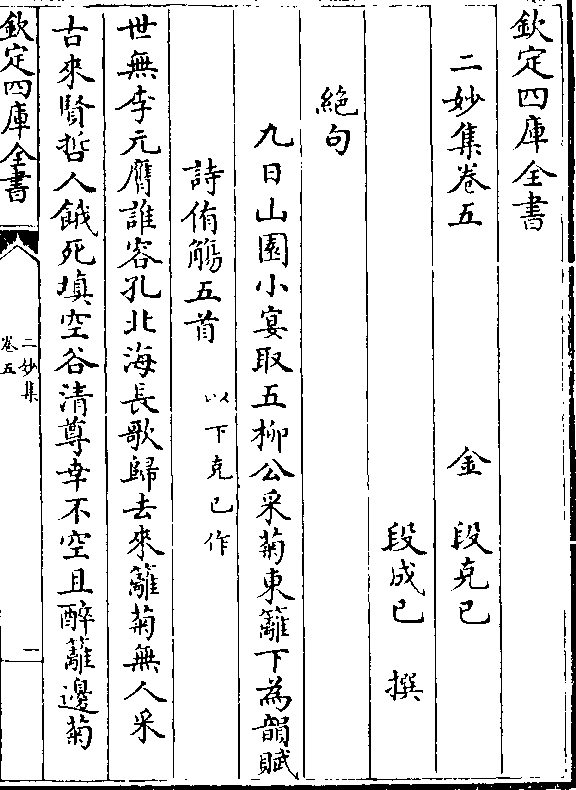 欽定四庫全書
二妙集卷五
金 段克已
段成已 撰
絶句
九日山園小宴取五柳公采菊東籬下為韻賦
詩侑觴五首 以下克已作
世無李元膺誰容孔北海長歌歸去來籬菊無人采
古來賢哲人餓死填空谷清尊幸不空且醉籬邊菊
欽定四庫全書
二妙集
卷五
一